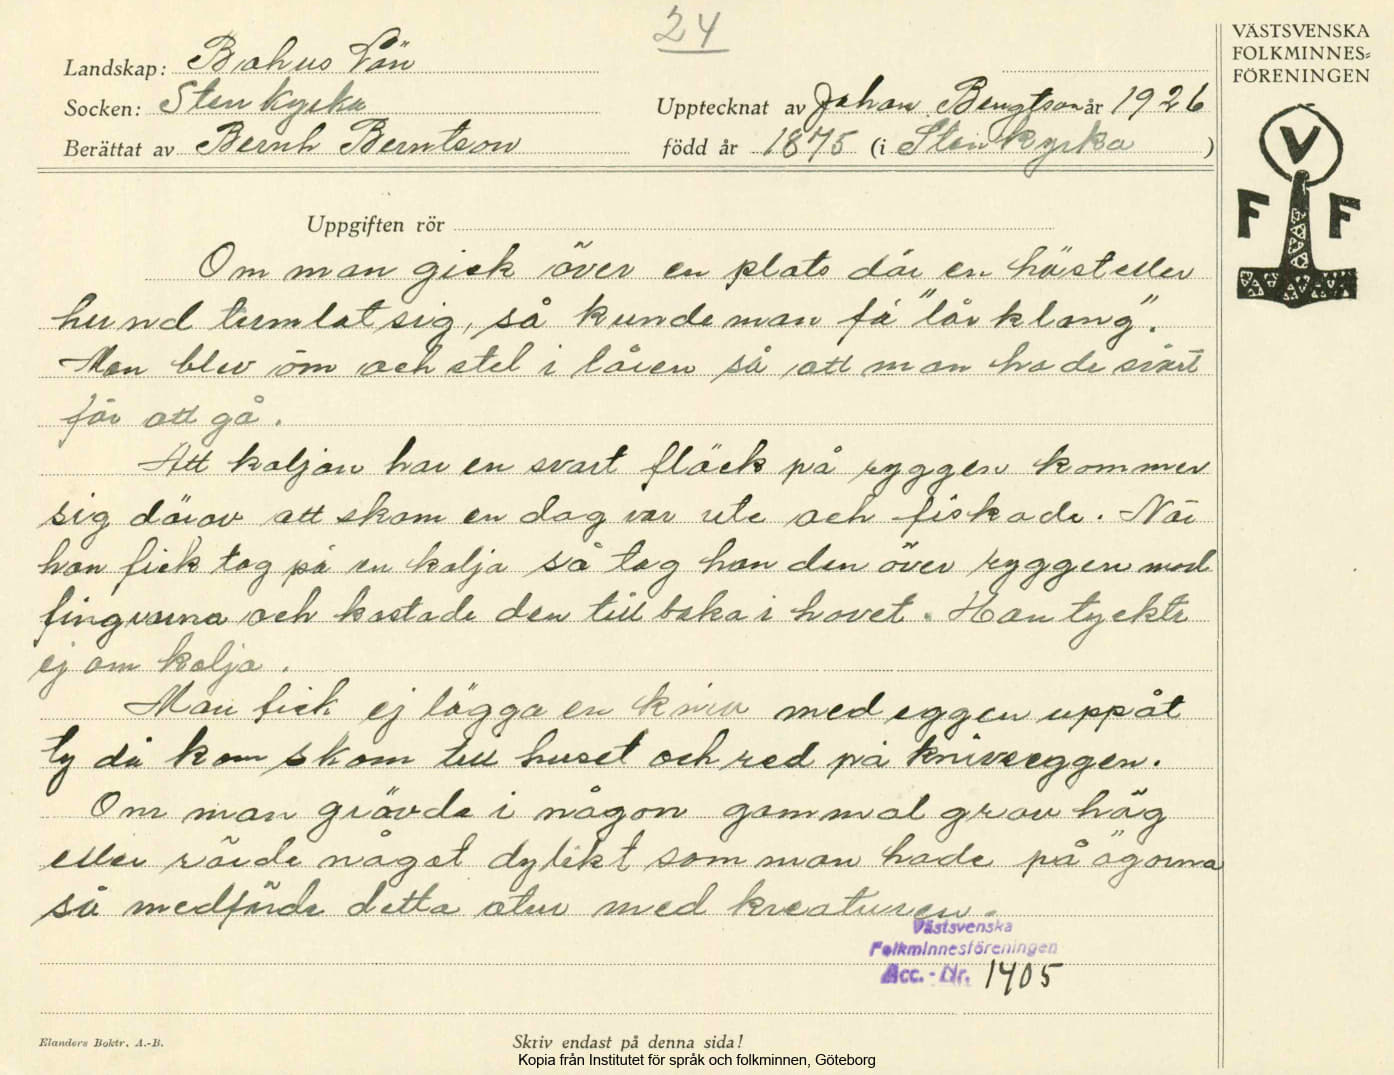 24
VÄSTSVENSKA
FOLKMINNES=
FÖRENINGEN
V
F F
Landskap: Bohus Län
Socken: Stenkyrka
Upptecknat av Johan Bengtson år 1926
Berättat av Bernh Berntson
född år 1875 (i Stenkyrka )
Uppgiften rör
Om man gick över en plats där en häst eller
hund tumlat sig, så kunde man få "lårklang".
Man blev öm och stel i låren så att man hade svårt
för att gå.
Att koljan har en svart fläck på ryggen kommer
sig därav att skam en dag var ute och fiskade. När
han fick tag på en kolja så tog han den över ryggen med
fingrarna och kastade den tillbaka i havet. Han tyckte
ej om kolja.
Man fick ej lägga en kniv med eggen uppåt
ty då kom skam till huset och red på knivseggen.
Om man grävde i någon gammal grav hög
eller rörde något dylikt som man hade på ägorna
så medförde detta otur med kreaturen.
Västsvenska
Folkminnesföreningen
Acc.-Nr. 1405
Elanders Boktr. A.-B.
Skriv endast på denna sida!
Kopia från Institutet för språk och folkminnen, Göteborg